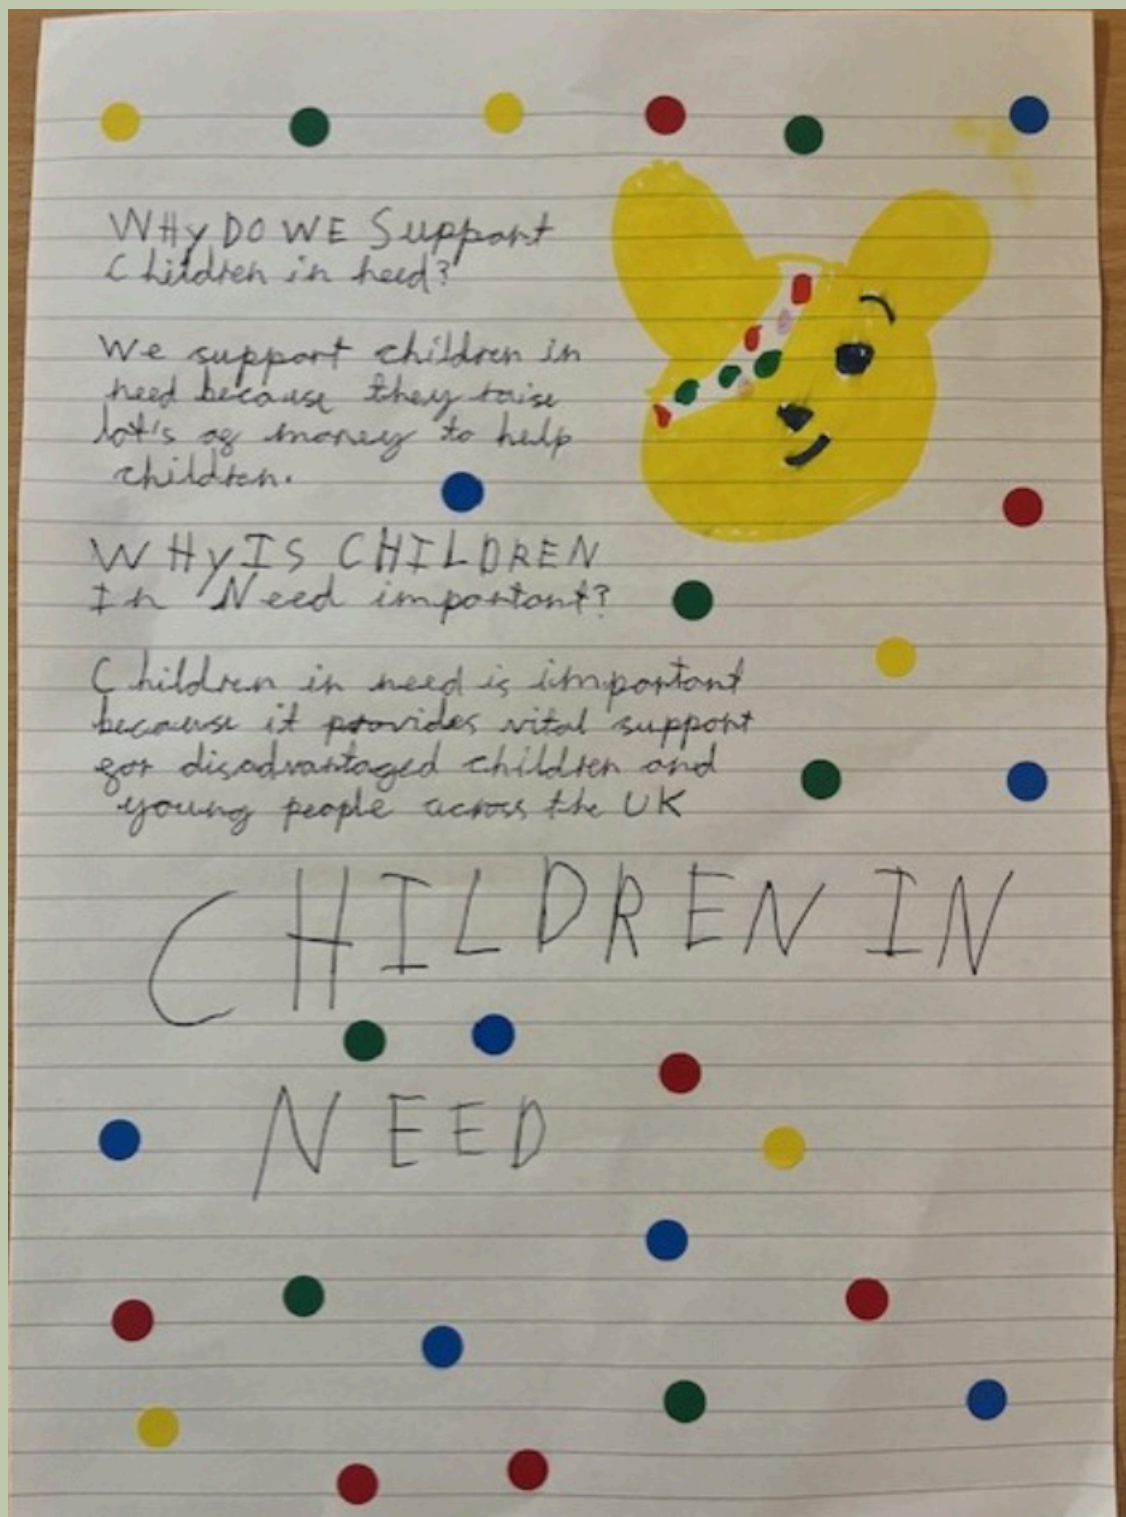 WHy DO WE Support
Children in need?
We support children in
need because they raise
lot's of money to help
children.
WHy IS CHILDREN
In Need important?
Children in need is important
because it provides vital support
for disadvantaged children and
young people across the UK
CHILDREN IN
NEED